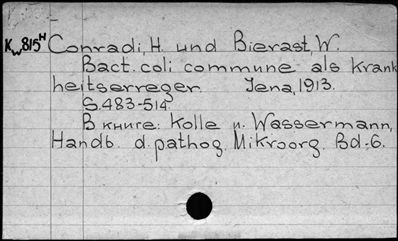 Kw815H Conradi, H. und Bierast, W.
Bact. coli commune als Krank
heitserreger Jena, 1913.
S. 483-514.
В книге: Kolle u. Wassermann,
Handb. d. pathog. Mikroorg. Bd. 6.